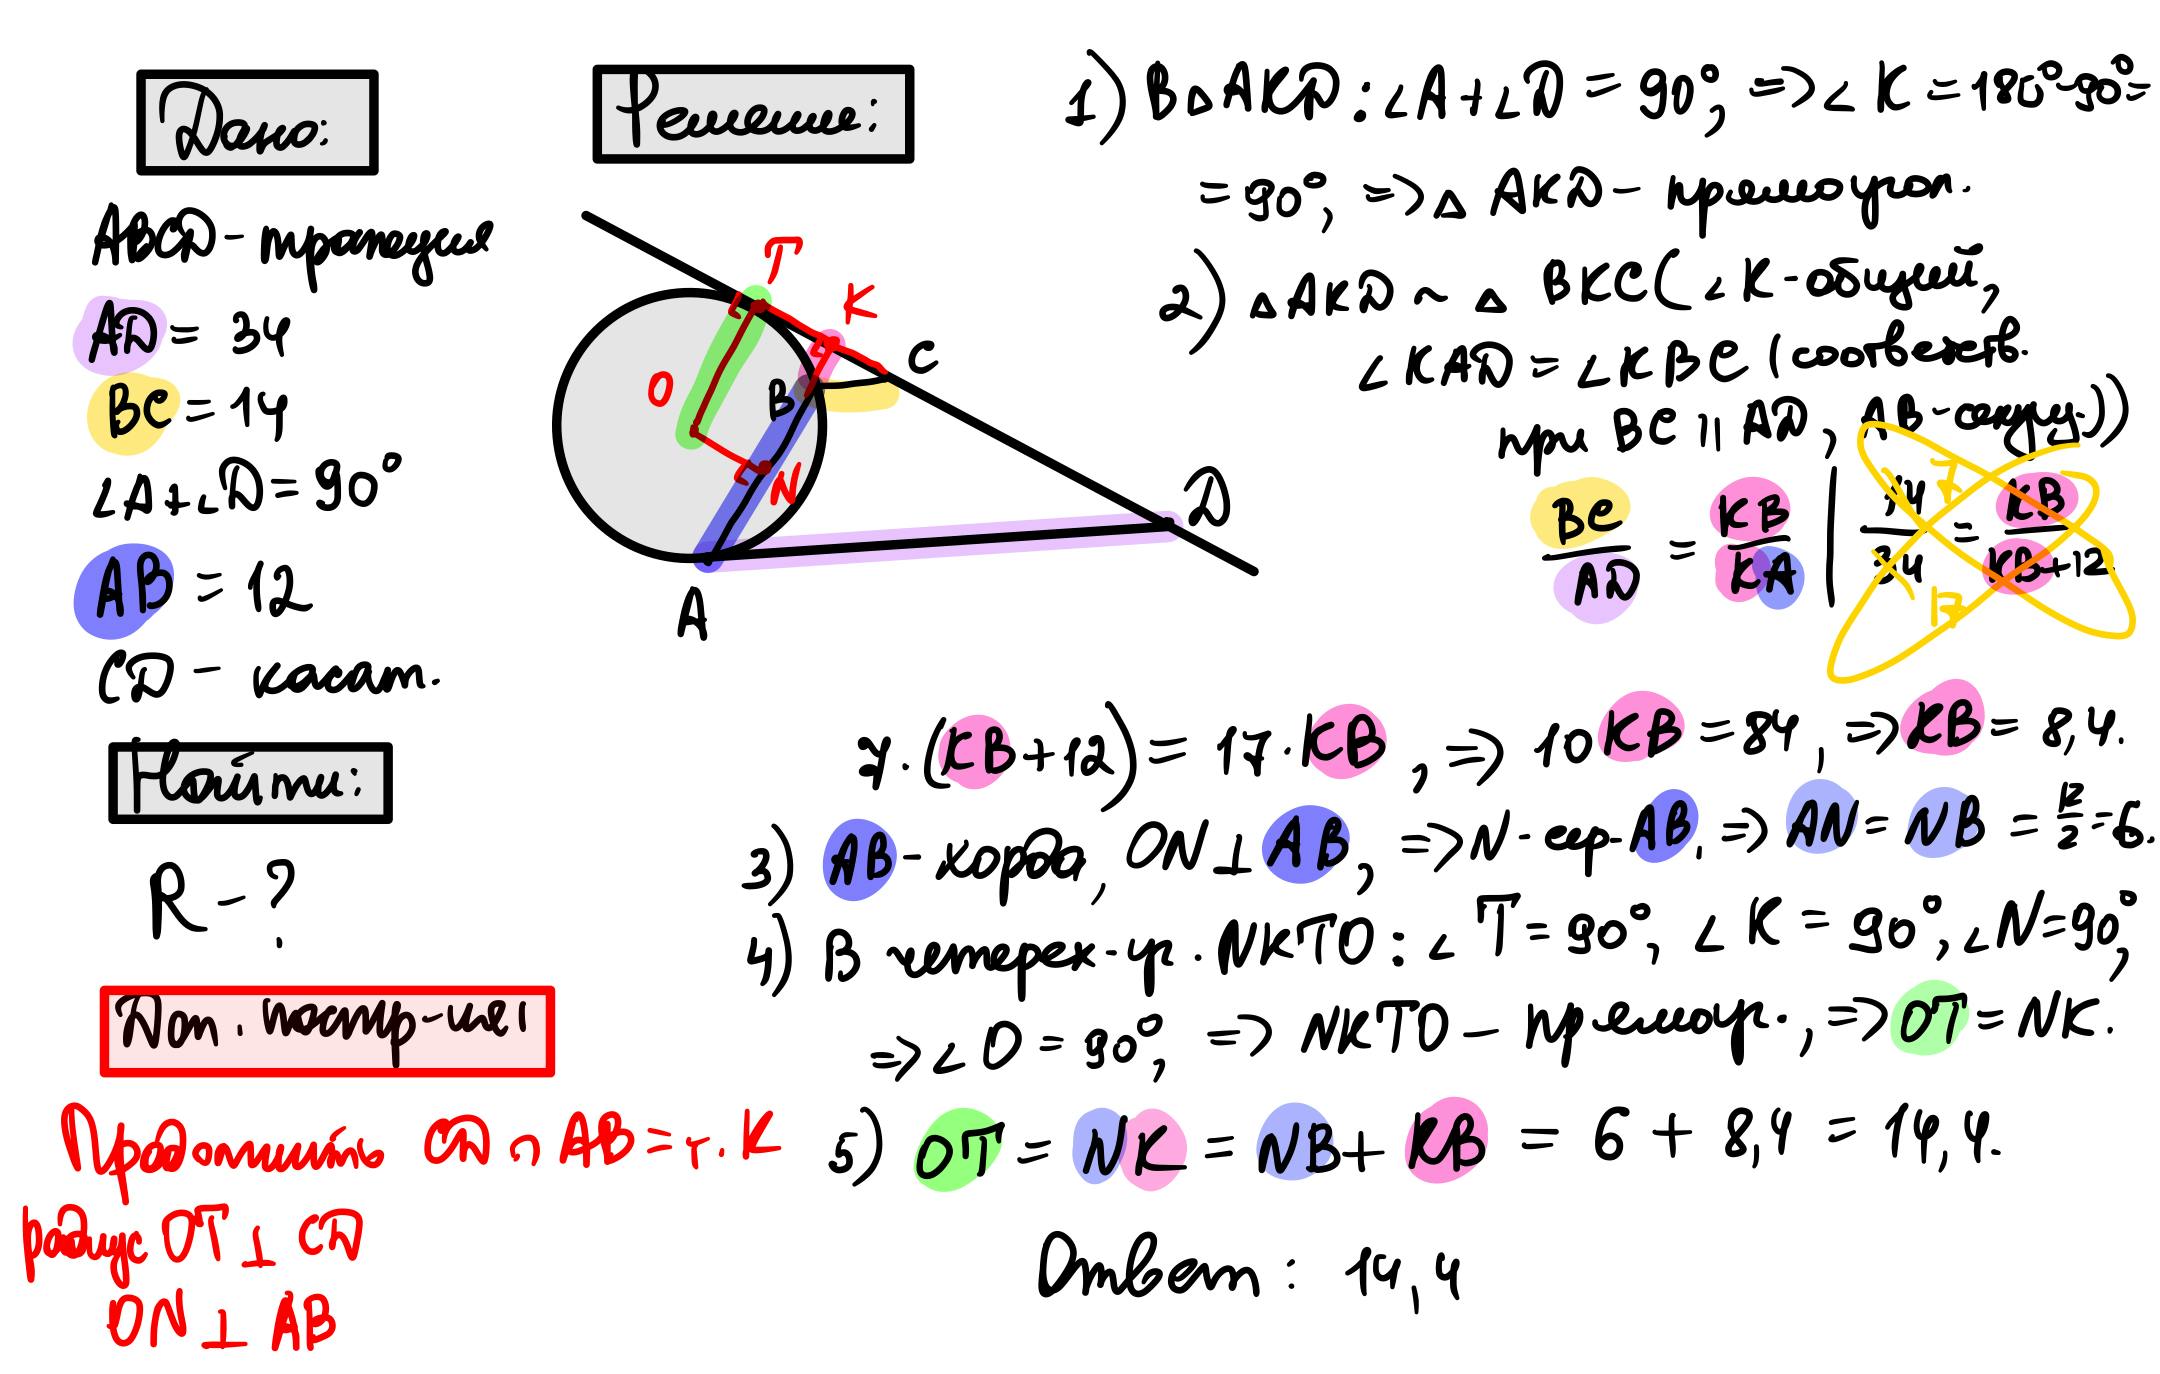 Дано:
ABCD - трапеция
AD = 34
BC = 14
∠A+∠D = 90°
AB = 12
CD - касат.
Найти:
R - ?
Доп. постр-ие:
Продолжить CD ∩ AB = т. K
радиус OT ⊥ CD
ON ⊥ AB
Решение:
T
K
C
O
B
N
D
A
1) В △ AKD: ∠A+∠D = 90°, => ∠K = 180°-90° =
= 90°, => △ AKD - прямоугол.
2) △ AKD ~ △ BKC (∠K - общий,
∠KAD = ∠KBC (соответств.
при BC || AD, AB - секущ.))
BC/AD = KB/KA | 14/34 = KB/(KB+12)
7
17
7·(KB+12) = 17·KB, => 10 KB = 84, => KB = 8,4.
3) AB - хорда, ON ⊥ AB, => N - сер. AB, => AN = NB = 12/2 = 6.
4) В четерех-уг. NKTO: ∠T = 90°, ∠K = 90°, ∠N = 90°,
=> ∠O = 90°, => NKTO - прямоуг., => OT = NK.
5) OT = NK = NB + KB = 6 + 8,4 = 14,4.
Ответ: 14,4